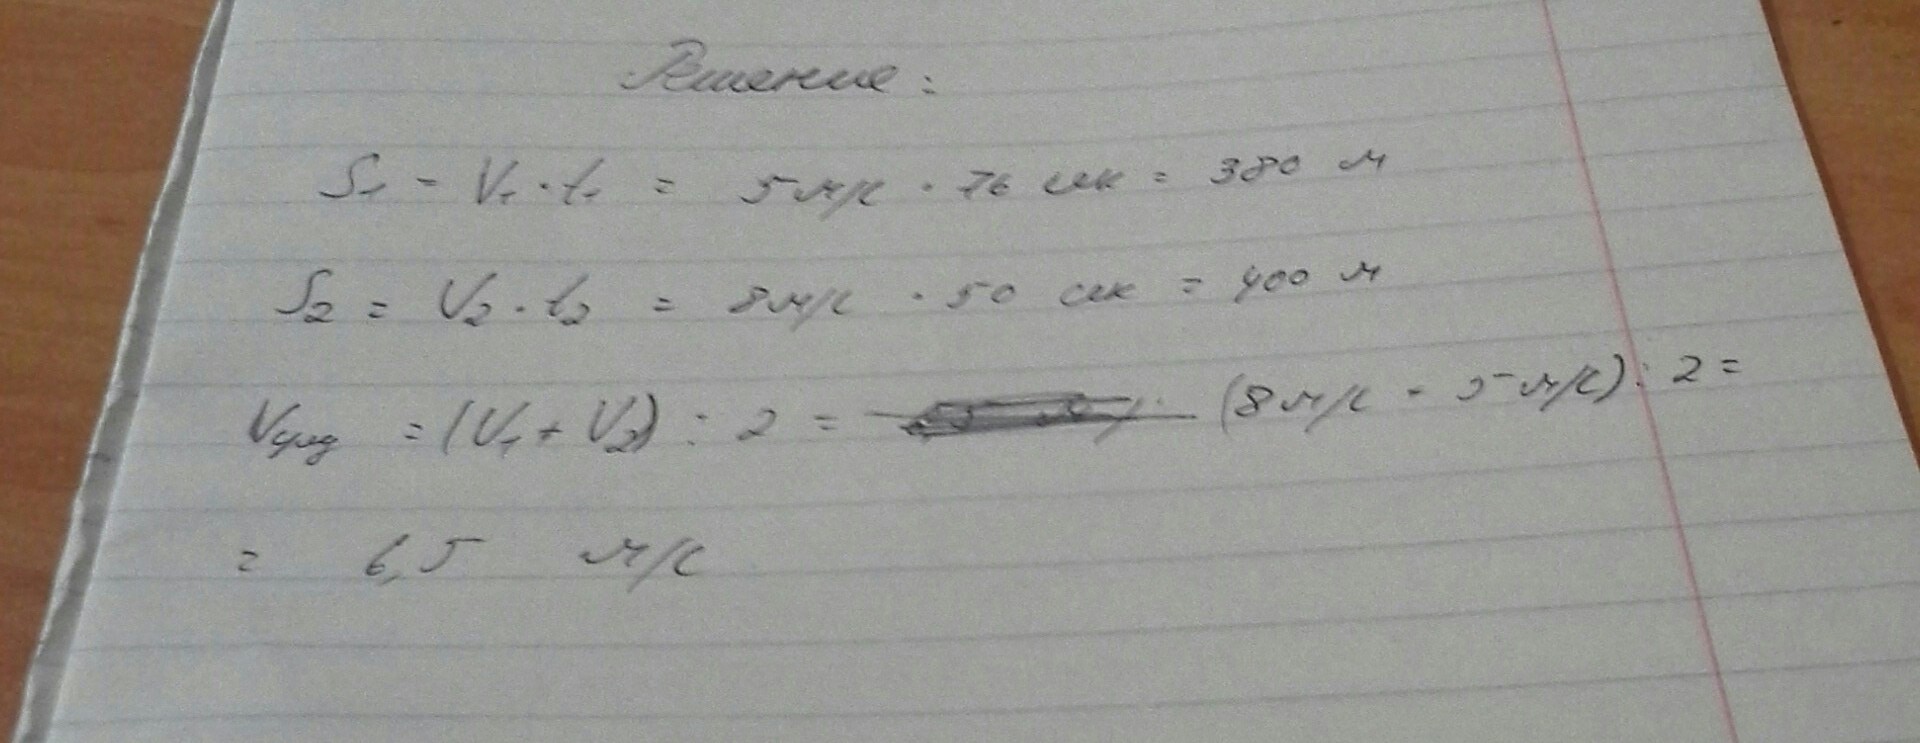 Решение:
S₁ = V₁ · t₁ = 5 м/с · 76 сек = 380 м
S₂ = V₂ · t₂ = 8 м/с · 50 сек = 400 м
Vсред = (V₁ + V₂) : 2 = (8 м/с - 5 м/с) : 2 =
= 6,5 м/с